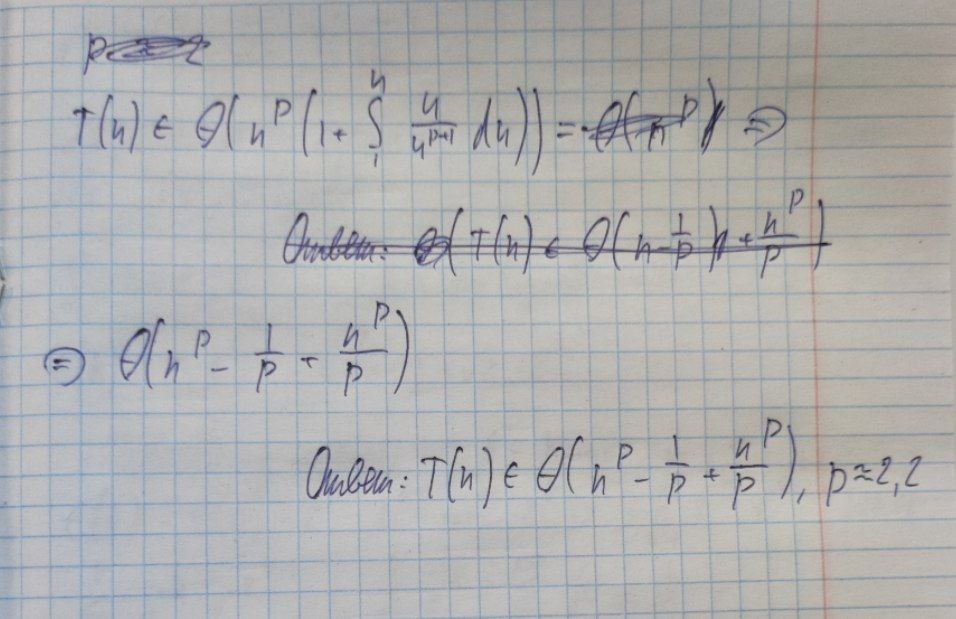 p
T(n) ∈ Θ(n^p (1 + ∫_1^n n/n^{p+1} dn)) = Θ(n^p) ⊜
Ответ: T(n) ∈ Θ(n - 1/p) + n^p/p)
⊜ Θ(n^p - 1/p + n^p/p)
Ответ: T(n) ∈ Θ(n^p - 1/p + n^p/p), p≈2,2